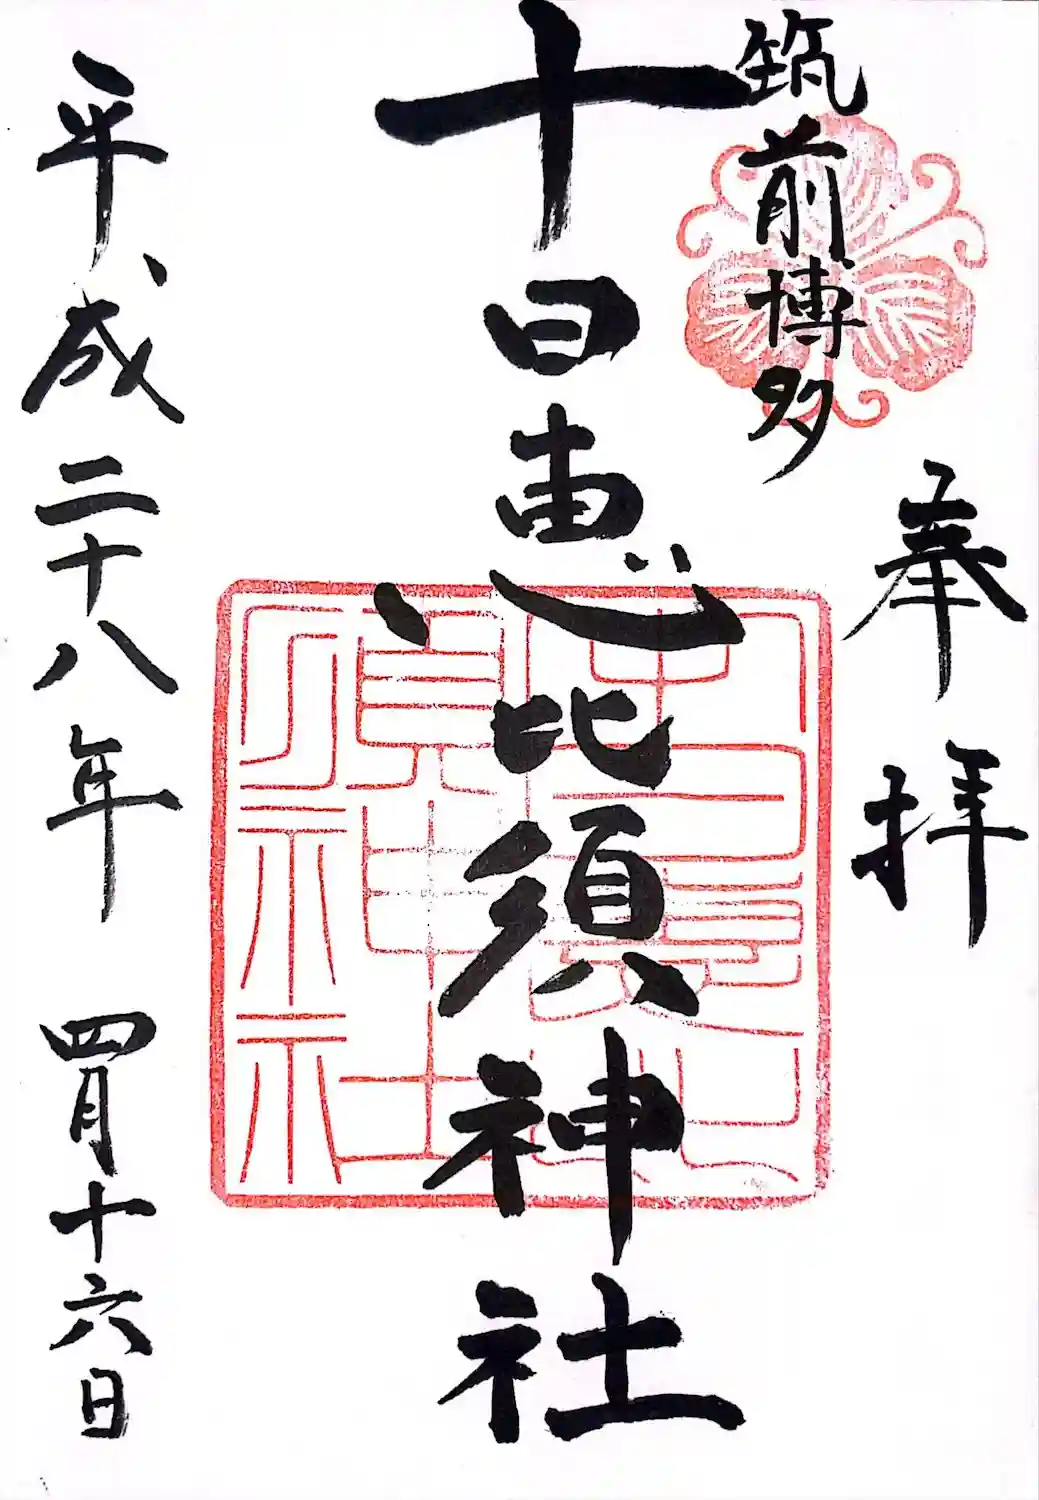 奉拝
筑前博多
十日恵比須神社
平成二十八年 四月十六日
十日恵比須神社